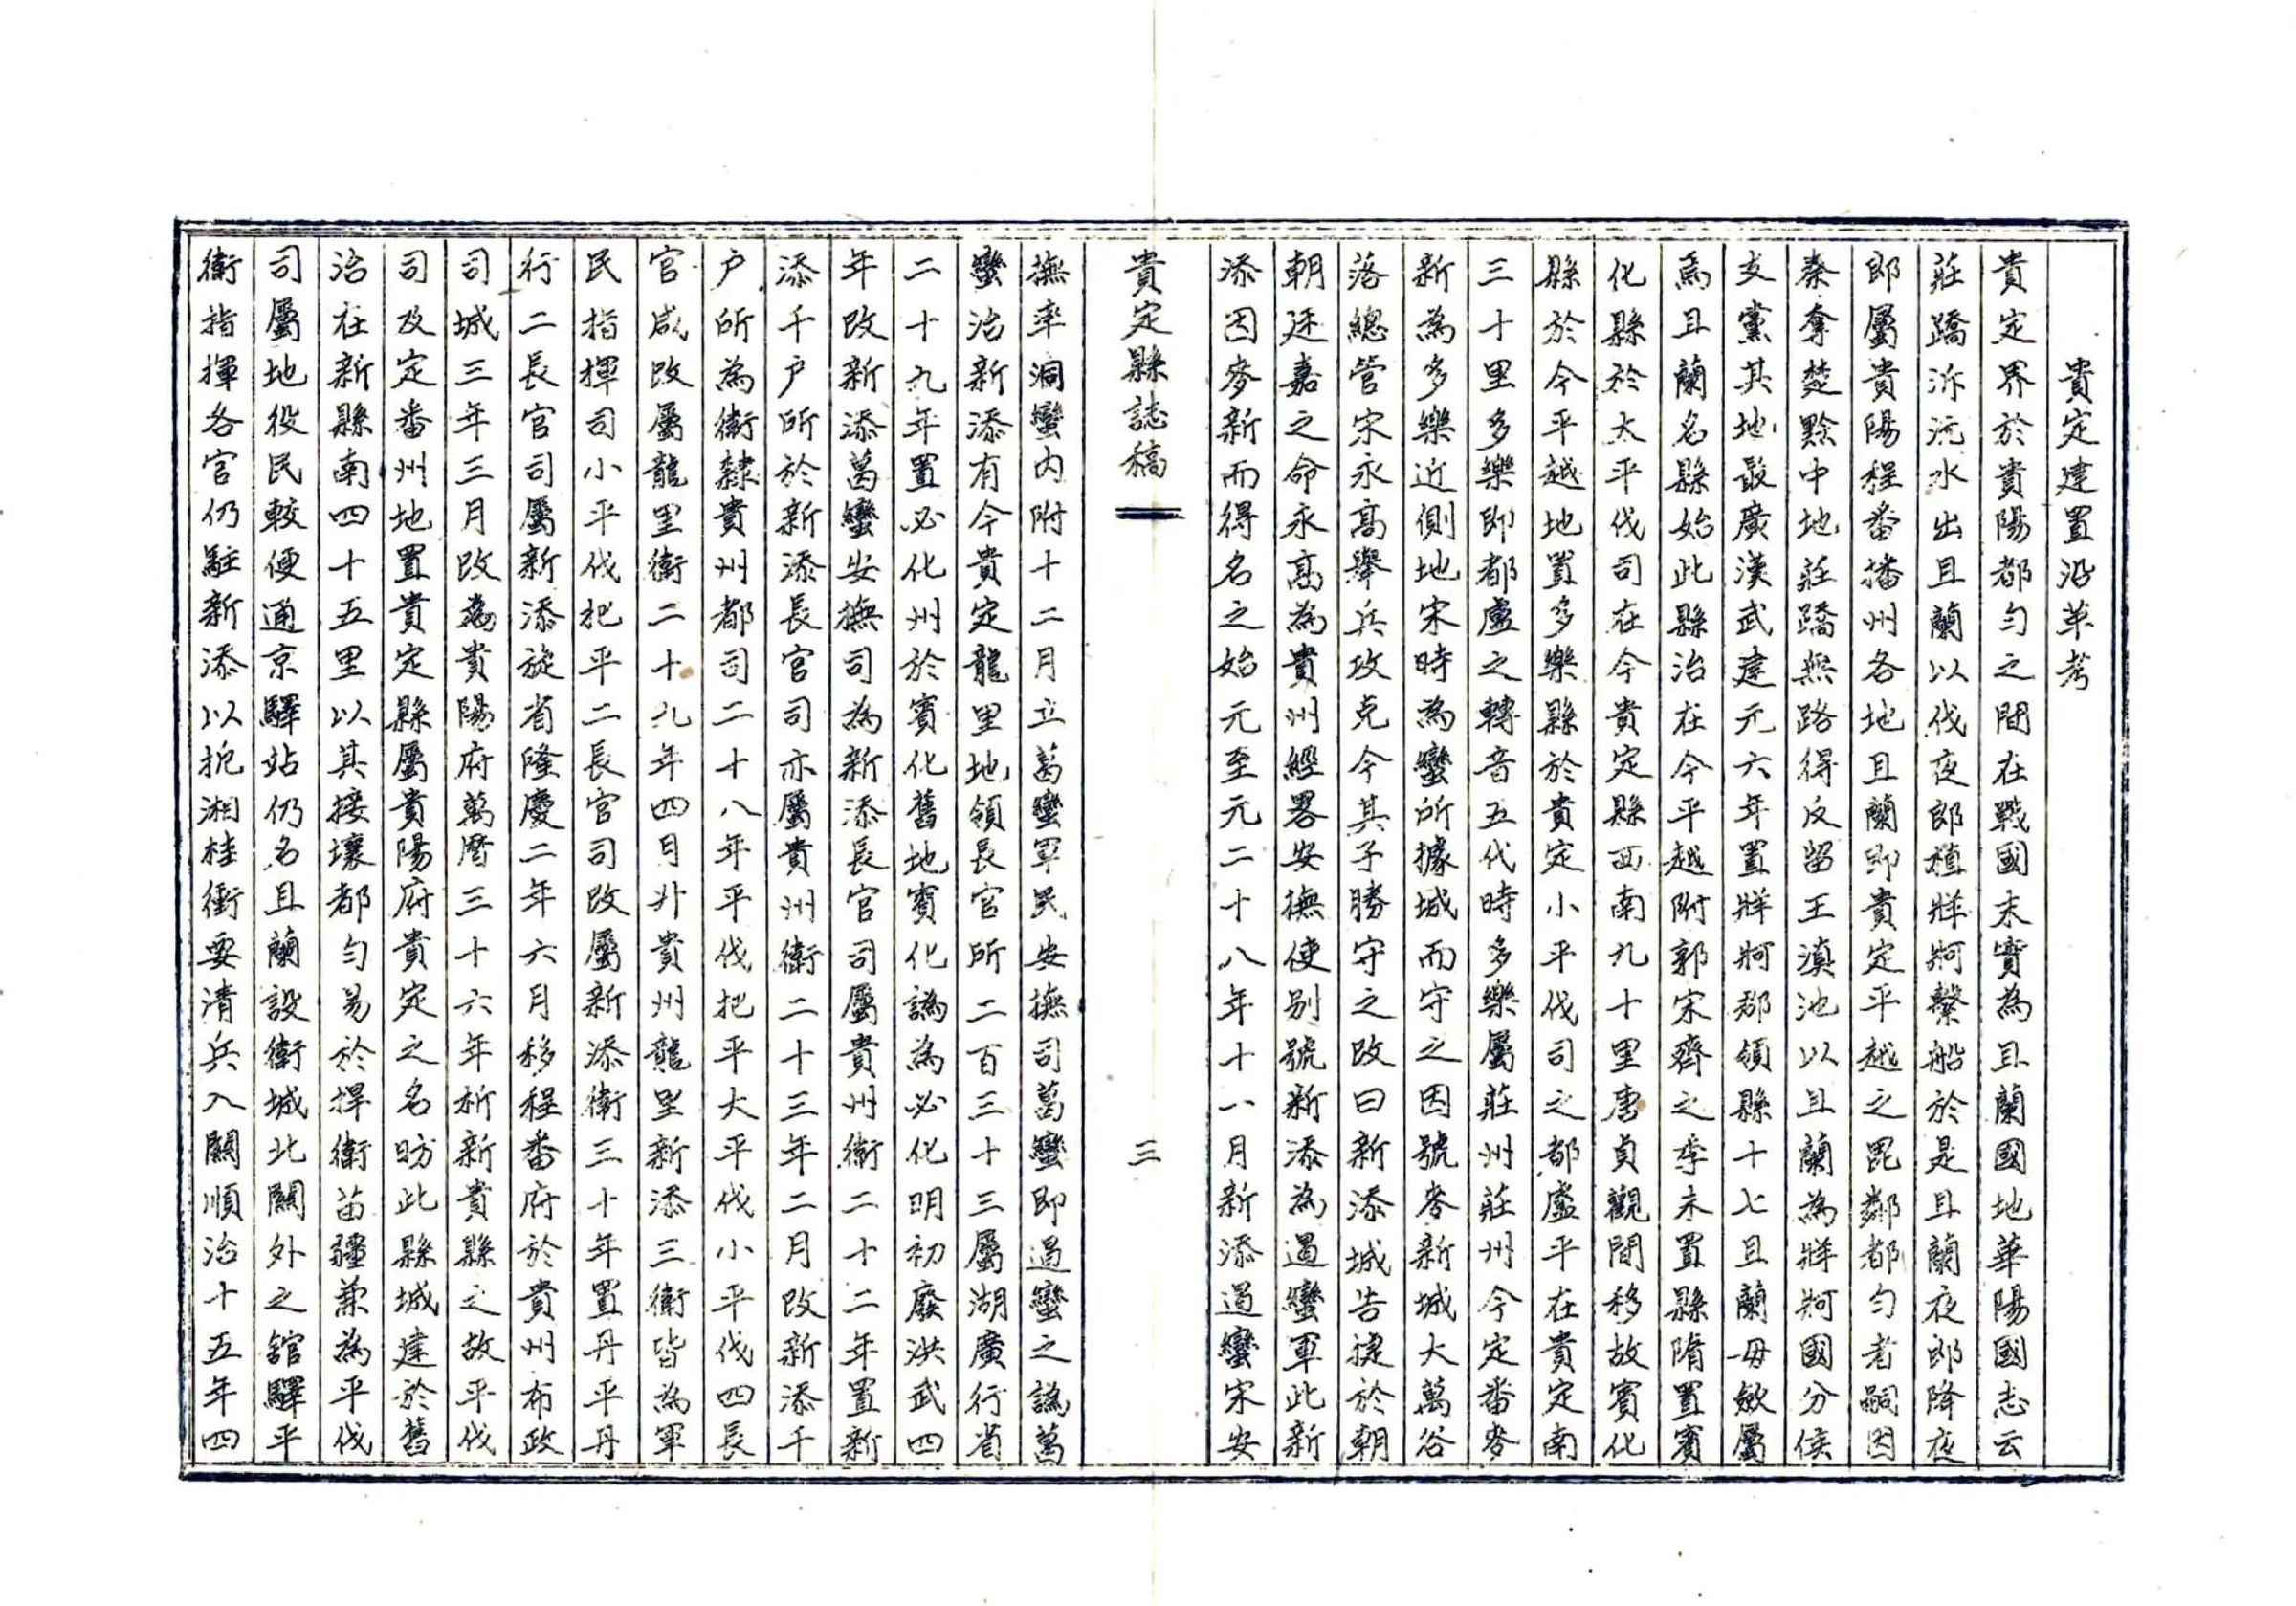 貴定建置沿革考
貴定界於貴陽都勻之間在戰國末實為且蘭國地華陽國志云
莊蹻泝沅水出且蘭以伐夜郎植牂牁繫船於是且蘭夜郎降夜
郎屬貴陽程番播州各地且蘭即貴定平越之毘鄰都勻者嗣因
秦奪楚黔中地莊蹻無路得反留王滇池以且蘭為牂牁國分侯
支黨其地最廣漢武建元六年置牂牁郡領縣十七且蘭毋斂屬
焉且蘭名縣始此縣治在今平越附郭宋齊之季末置縣隋置賓
化縣於大平伐司在今貴定縣西南九十里唐貞觀間移故賓化
縣於今平越地置多樂縣於貴定小平伐司之都盧平在貴定南
三十里多樂即都盧之轉音五代時多樂屬莊州莊州今定番麥
新為多樂近側地宋時為蠻所據城而守之因號麥新城大萬谷
落總管宋永高舉兵攻克今其子勝守之改曰新添城告捷於朝
朝廷嘉之命永高為貴州經畧安撫使別號新添為過蠻軍此新
添因麥新而得名之始元至元二十八年十一月新添過蠻宋安
貴定縣誌稿
三
撫率洞蠻內附十二月立葛蠻軍民安撫司葛蠻即過蠻之譌葛
蠻治新添有今貴定龍里地領長官所二百三十三屬湖廣行省
二十九年置必化州於賓化舊地賓化譌為必化明初廢洪武四
年改新添葛蠻安撫司為新添長官司屬貴州衛二十二年置新
添千戶所於新添長官司亦屬貴州衛二十三年二月改新添千
戶所為衛隸貴州都司二十八年平伐把平大平伐小平伐四長
官咸改屬龍里衛二十九年四月升貴州龍里新添三衛皆為軍
民指揮司小平伐把平二長官司改屬新添衛三十年置丹平丹
行二長官司屬新添旋省隆慶二年六月移程番府於貴州布政
司城三年三月改為貴陽府萬曆三十六年析新貴縣之故平伐
司及定番州地置貴定縣屬貴陽府貴定之名昉此縣城建於舊
治在新縣南四十五里以其接壤都勻易於捍衛苗疆兼為平伐
司屬地役民較便通京驛站仍名且蘭設衛城北關外之舘驛平
衛指揮各官仍駐新添以扼湘桂衝要清兵入關順治十五年四